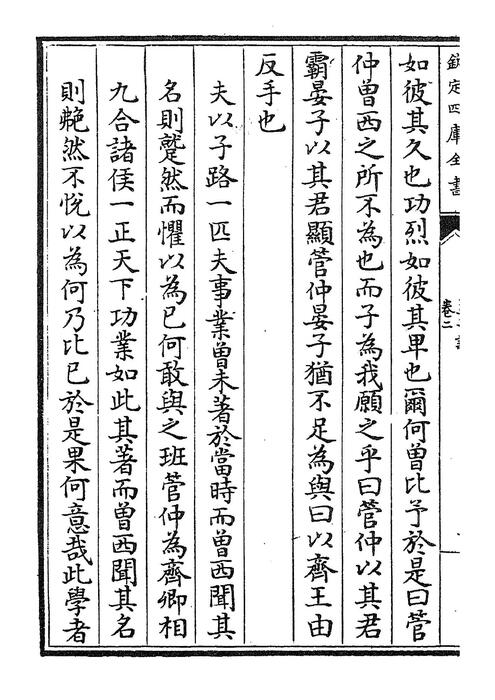 欽定四庫全書
卷二
如彼其久也功烈如彼其卑也爾何曽比予於是曰管
仲曽西之所不為也而子為我願之乎曰管仲以其君
霸晏子以其君顯管仲晏子猶不足為與曰以齊王由
反手也
夫以子路一匹夫事業曽未著於當時而曽西聞其
名則蹵然而懼以為已何敢與之班管仲為齊卿相
九合諸侯一正天下功業如此其著而曽西聞其名
則艴然不悅以為何乃比已於是果何意哉此學者